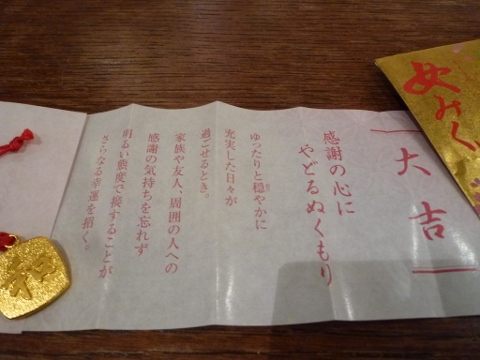 大吉
感謝の心に
やどるぬくもり
ゆったりと穏やかに
充実した日々が
過ごせるとき。
家族や友人、周囲の人への
感謝の気持ちを忘れず
明るい態度で接することが
さらなる幸運を招く。
みく